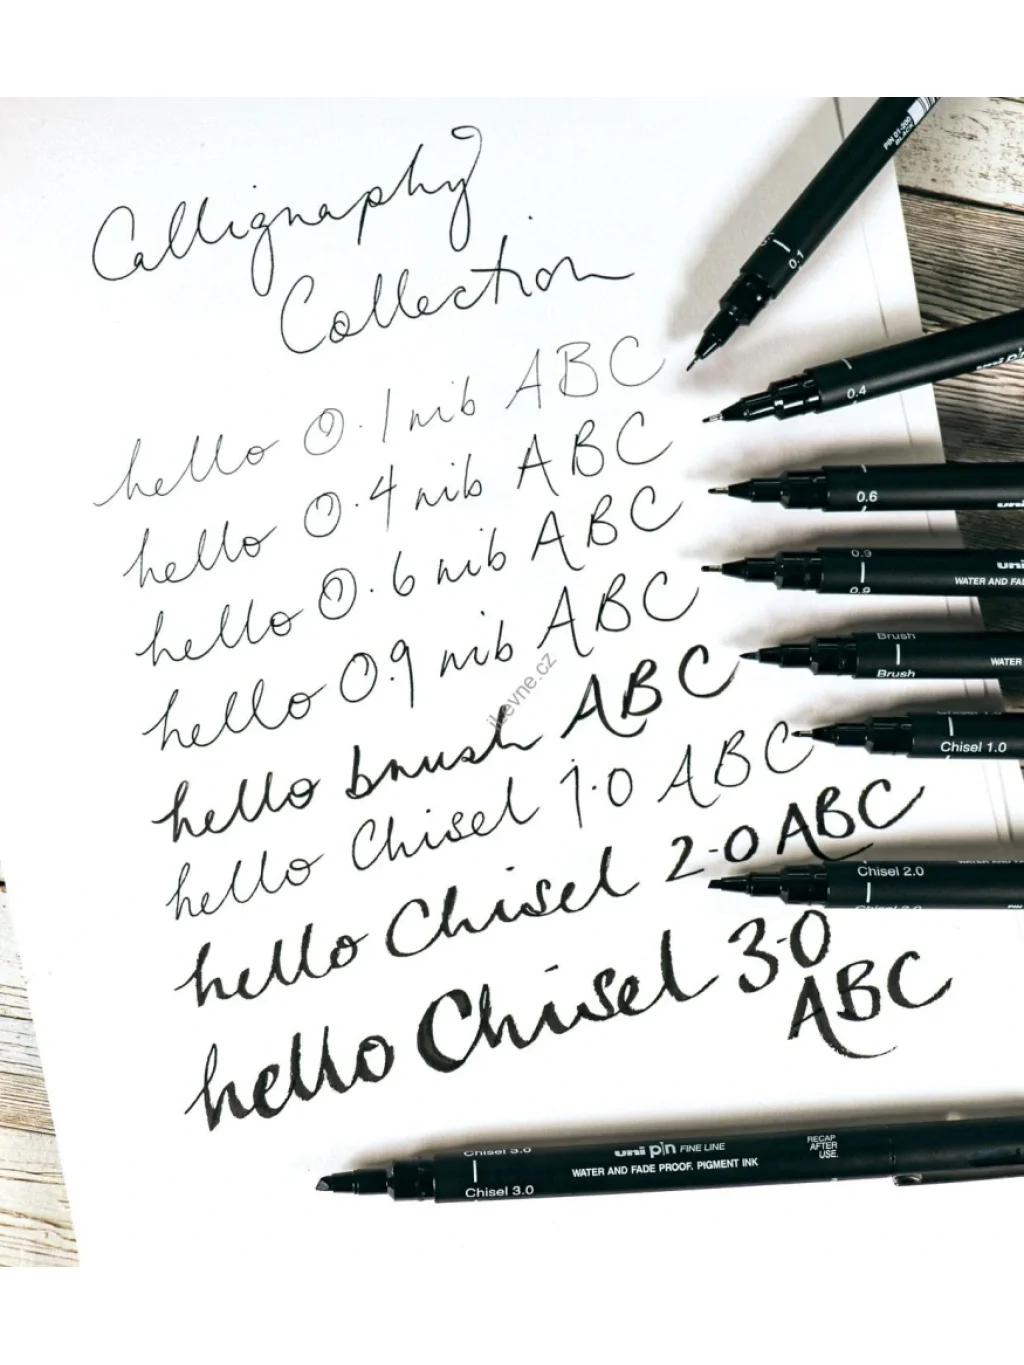 Calligraphy
Collection
hello 0.1 nib ABC
hello 0.4 nib ABC
hello 0.6 nib ABC
hello 0.9 nib ABC
hello brush ABC
hello Chisel 1.0 ABC
hello Chisel 2.0 ABC
hello Chisel 3.0
ABC
PIN 01-200
BLACK
0.1
0.4
uni pin
0.6
uni
0.9
0.9
uni
WATER AND FA
Brush
Brush
WATER
Chisel 1.0
Chisel 2.0
PIN
Chisel 3.0
Chisel 3.0
uni pin FINE LINE
WATER AND FADE PROOF. PIGMENT INK
RECAP
AFTER
USE.